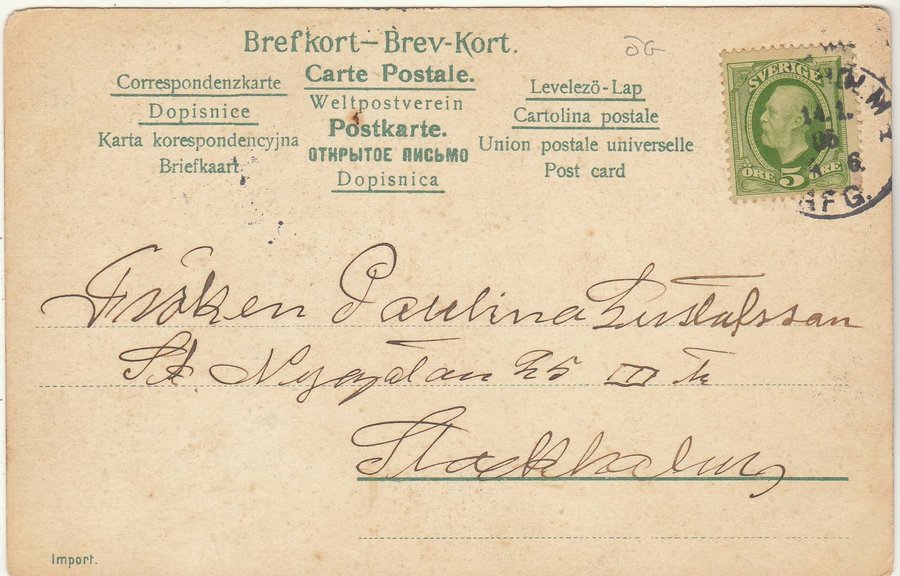 Brefkort—Brev-Kort.
Carte Postale.
Weltpostverein
Postkarte.
ОТКРЫТОЕ ПИСЬМО
Dopisnica
Correspondenzkarte
Dopisnice
Karta korespondencyjna
Briefkaart
Levelező-Lap
Cartolina postale
Union postale universelle
Post card
SVERIGE
ÖRE 5 ÖRE
14.1.
06
6.
AFG.
Fröken Paulina Gustafsson
St Nygatan 25 III Tr
Stockholm
Import.